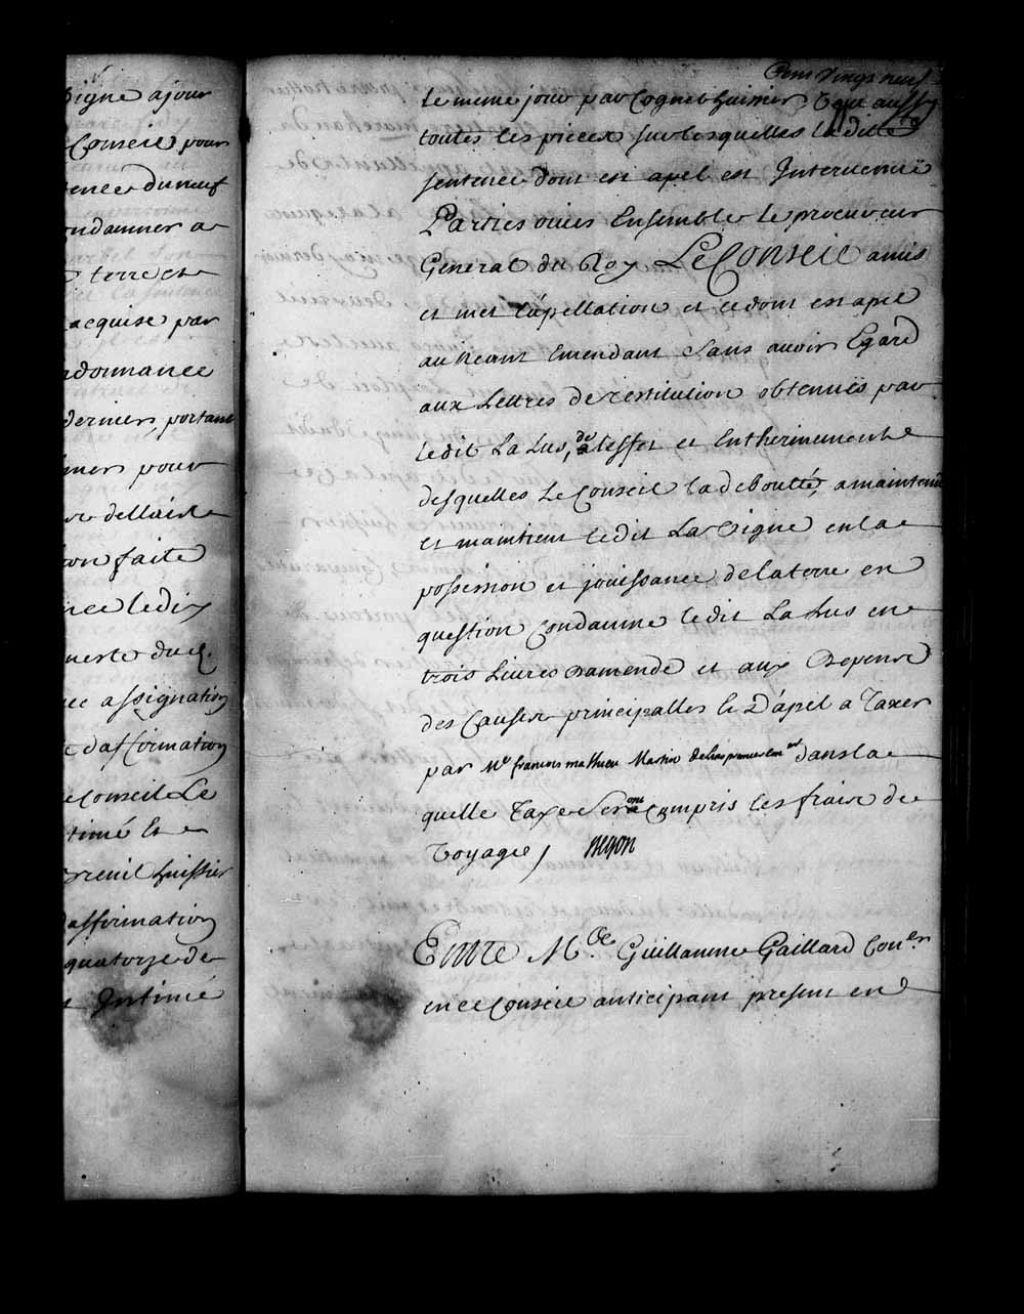 signe ajour
Conseil pour
tence du neuf
ondamner a
terre et
acquise par
donnance
dernier, portant
pour
faite
nce ledit
assignation
daffirmation
e Conseil Le
timé Et
reuil huissier
daffirmation
quatorze de
Intimé
Cent Vingt neuf
le meme jour par Cognet huissier, Veue aussy
toutes les pieces sur lesquelles ladite
sentence dont est apel est Intervenüe
Parties ouies Ensemble le procureur
General du Roy Le Conseil a mis
et met l'apellation et ce dont est apel
au Neant Emendant Sans avoir Egard
aux Lettres de restitution obtenües par
ledit La Lus, de leffet et Entherinement
desquelles Le Conseil la deboutté, a maintenu
et maintient ledit La Vigne en la
possession et jouissance de la terre en
question Condamne ledit La Lus en
trois Livres Damende et aux Depens
des Causes principalles et D'apel a Taxer
par Me francois mathieu Martin delino premier Coner dans la
quelle Taxe Seront Compris les fraix de
Voyage / Begon
Entre Me. Guillaume Gaillard Coner
en ce Conseil anticipant present en